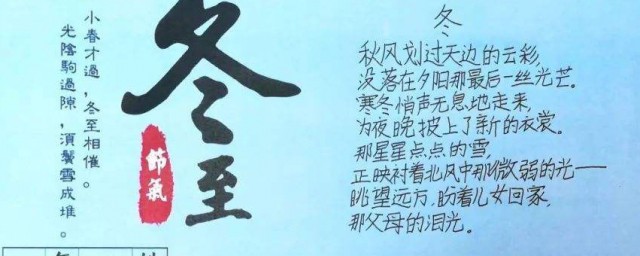 小春才過，冬至相催。
光陰駒過隙，湏鬢雪成堆。
冬至
節氣
冬
秋风划过天边的云彩，
没落在夕阳那最后一丝光芒。
寒冬悄声无息地走来，
为夜晚披上了新的衣裳。
那星星点点的雪，
正映衬着北风中那微弱的光——
眺望远方，盼着儿女回家，
那父母的泪光。